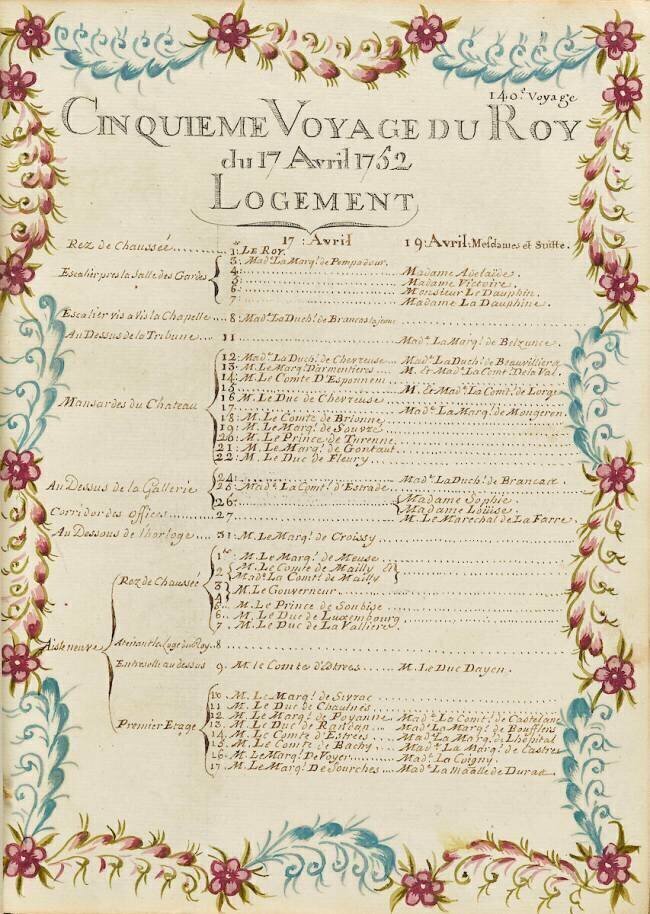 140.e Voyage
CINQUIEME VOYAGE DU ROY
du 17 Avril 1752
LOGEMENT
17: Avril 19: Avril: Mesdames et Suitte.
Rez de Chaussée 1: LE ROY.
3: Mad.e La Marq.e de Pompadour.
Escalier pres la Salle des Gardes 4: Madame Adelaïde.
5: Madame Victoire.
6: Monsieur Le Dauphin.
7: Madame La Dauphine.
Escalier vis a vis la Chapelle 8: Mad.e La Duch.e de Brancas
Au Dessus de la Tribune 11 Mad.e La Marq.e de Belzunce.
12: Mad.e La Duch.e de Chevreuse Mad.e La Duch.e de Beauvilliers
13: M. Le Marq.s Darmentieres M. et Mad.e La Comt.e De la Val.
14: M. Le Comte D'Esponnem
15 M. et Mad.e La Comt.e de Lorge
Mansardes du Chateau 16 M. Le Duc de Chevreuse
17 Mad.e La Marq.e de Mongeren
18: M. Le Comte de Brionne
19: M. Le Marq.s de Souvré
20: M. Le Prince de Turenne
21: M. Le Marq.s de Gontaut
22: M. Le Duc de Fleury
24: Mad.e La Duch.e de Brancas
Au Dessus de la Gallerie 25: Mad.e La Comt.e d'Estrade
26: Madame Sophie
Madame Louise
Corridor des offices 27 M. Le Marechal de La Farre
Au Dessous de l'horloge 31: M. Le Marq.s de Croissy
1.er M. Le Marq.s de Meuse
2 M. Le Comte de Mailly &
Mad.e La Comt.e de Mailly
Rez de Chaussée 3 M. Le Gouverneur
4
5 M. Le Prince de Soubise
6 M. Le Duc de Luxembourg
7 M. Le Duc de La Valliere
Aisle neuve Attenant la Loge du Roy 8
Entresolle au dessus 9 M. le Comte d'Estrees M. Le Duc Dayen.
10 M. Le Marq.s de
11 M. Le Duc de Chaulnes
12 M. Le Marq.s de Poyanne Mad.e La Comt.e de Castelane
Premier Etage 13 M. Le Duc de Mad.e La Marq.e de Boufflers
14 M. Le Comte d'Estrées Mad.e La Marq.e de Lhôpital
15 M. Le Comte de Bachy Mad.e La Marq.e de Castres
16 M. Le Marq.s De Voyer Mad.e La Coigny
17 M. Le Marq.s De Sourches Mad.e La Maalle de Duras